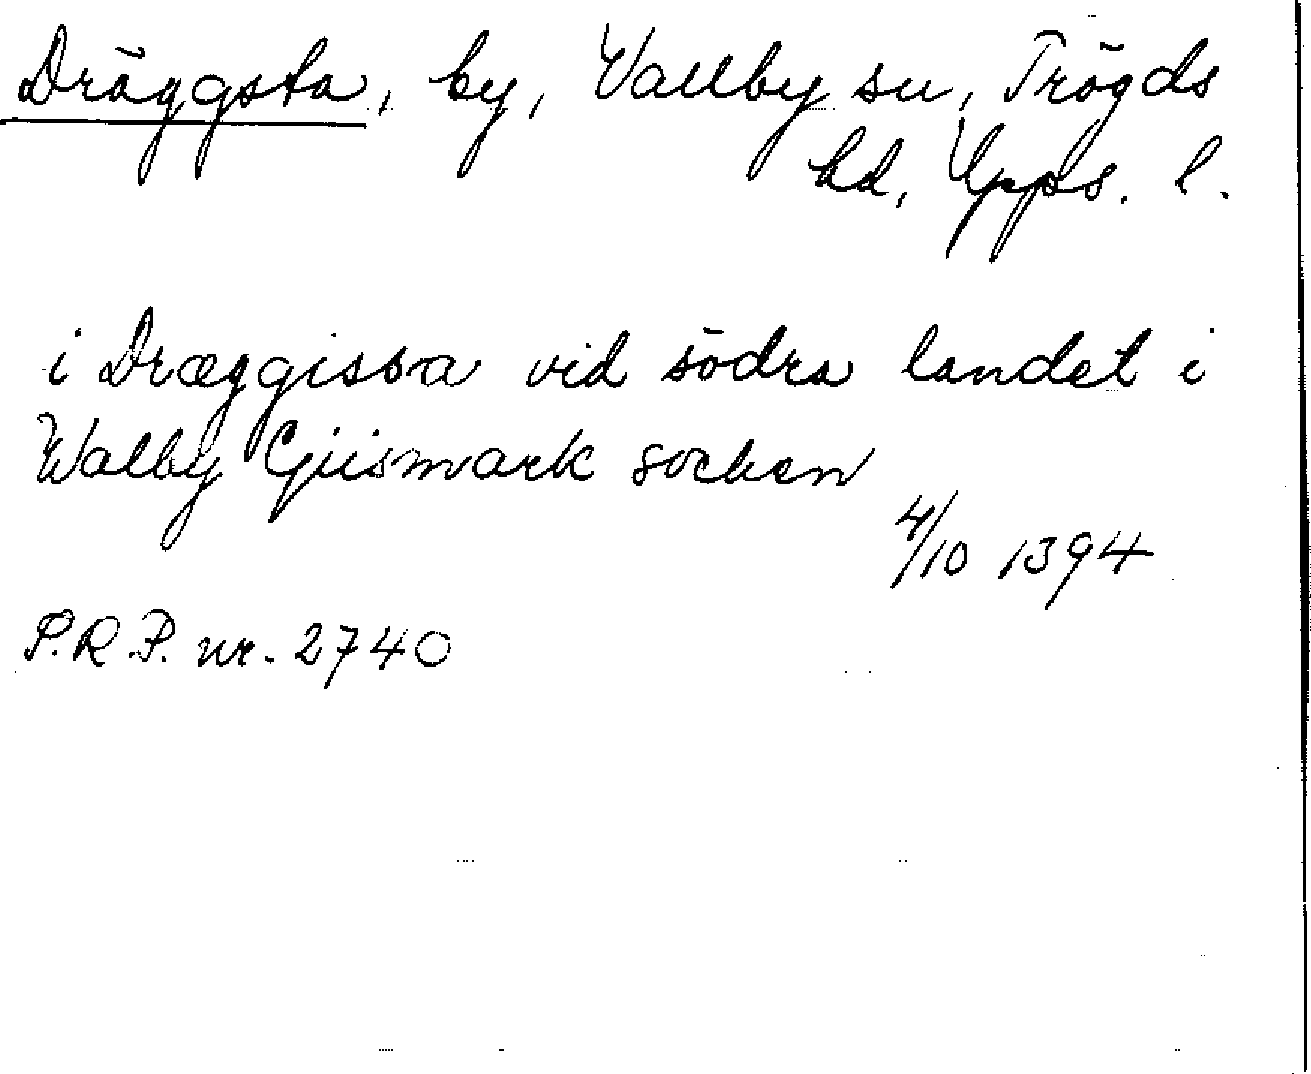 Dräggsta, by, Vallby sn, Trögds
hd, Upps. l.
i Dræggissa vid södra landet i
Walby Giismark socken
4/10 1394
P.R.P. nr. 2740